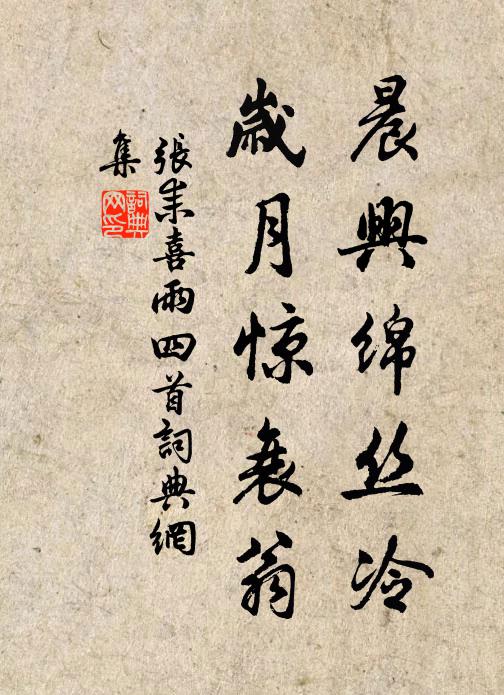 晨興绵丝冷
歲月惊衰翁
張耒喜雨四首詞典網
集
詞典网印